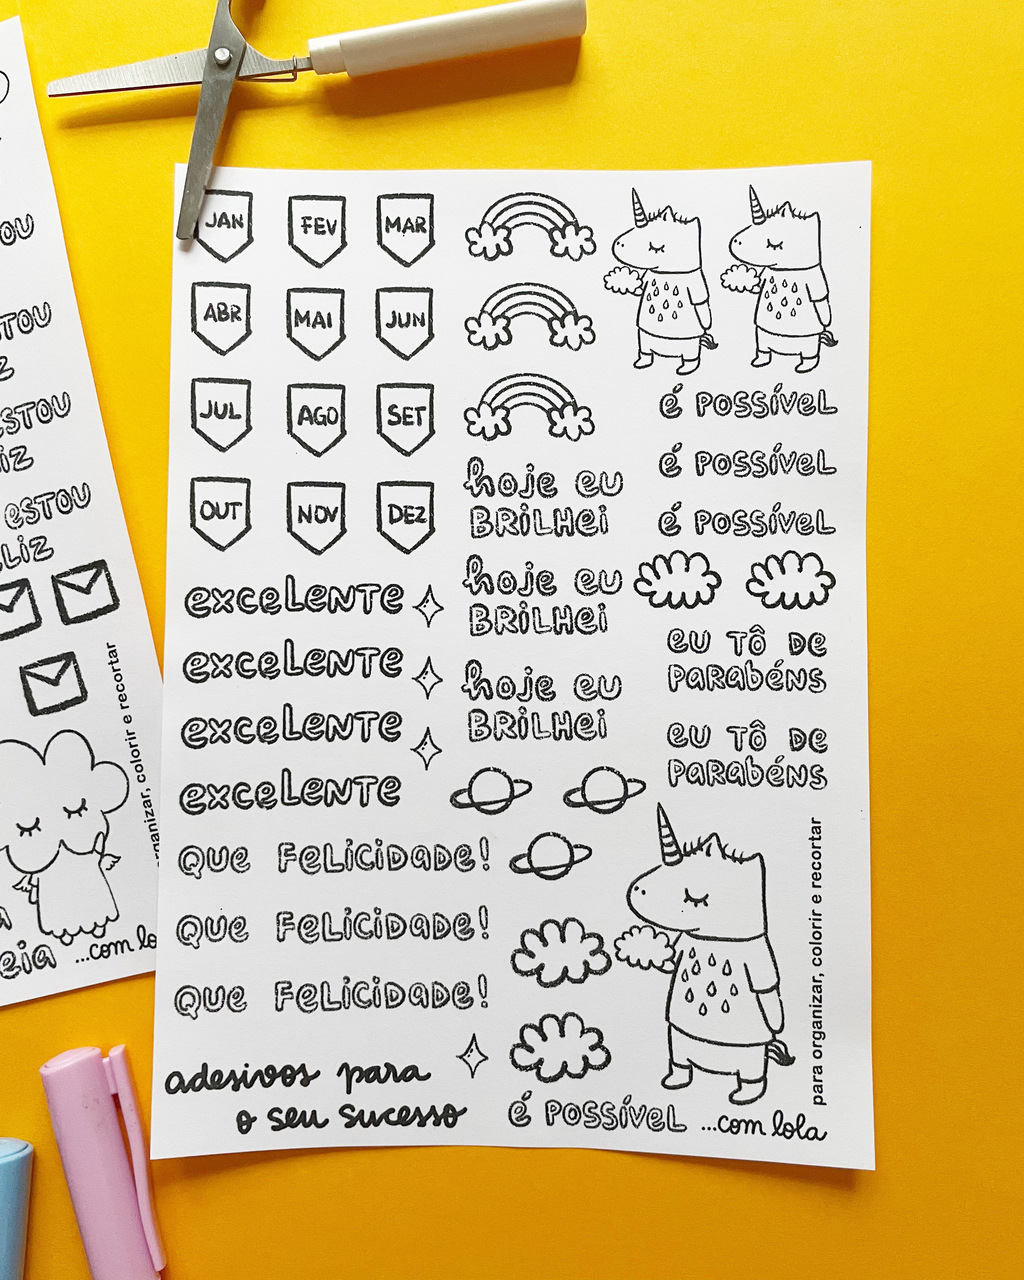 JAN FEV MAR
ABR MAI JUN
JUL AGO SET
OUT NOV DEZ
excelente
excelente
excelente
excelente
QUE FELICIDADE!
QUE FELICIDADE!
QUE FELICIDADE!
adesivos para
o seu sucesso
hoje eu
BRILHei
hoje eu
BRILHei
hoje eu
BRILHei
é POSSÍVEL
é POSSÍVEL
é POSSÍVEL
eu TÔ DE
PARAbéns
eu TÔ DE
PARAbéns
é POSSÍVEL ...com lola
para organizar, colorir e recortar
ESTOU
colorir e recortar
...com